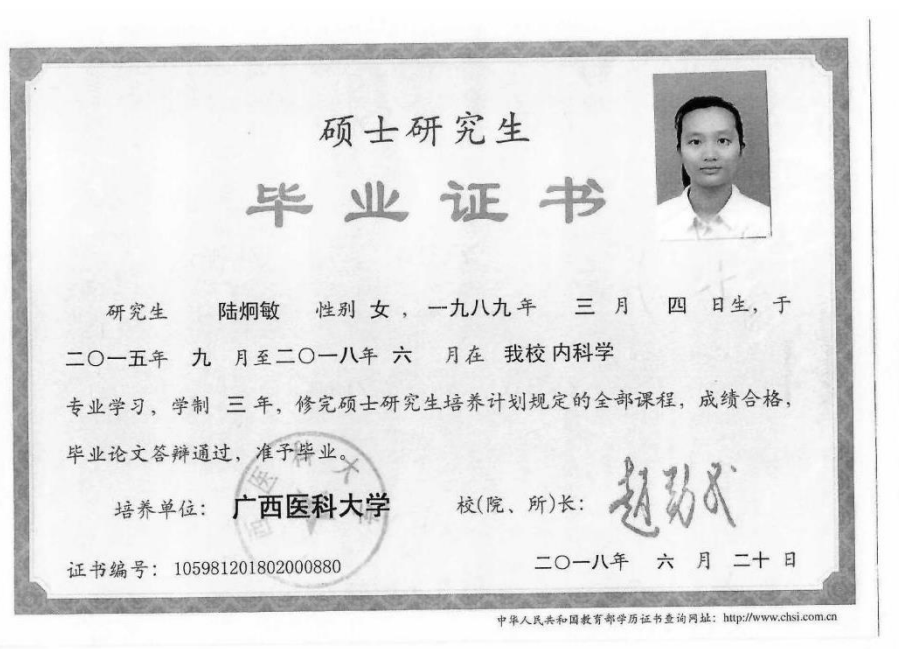 硕士研究生
毕业证书
研究生 陆炯敏 性别 女 ，一九八九年 三 月 四 日生，于
二〇一五年 九 月至二〇一八年 六 月在 我校 内科学
专业学习，学制 三 年，修完硕士研究生培养计划规定的全部课程，成绩合格，
毕业论文答辩通过，准予毕业。
西医科大学
培养单位：广西医科大学 校(院、所)长：赵劲民
证书编号：105981201802000880 二〇一八年 六 月 二十 日
中华人民共和国教育部学历证书查询网址：http://www.chsi.com.cn